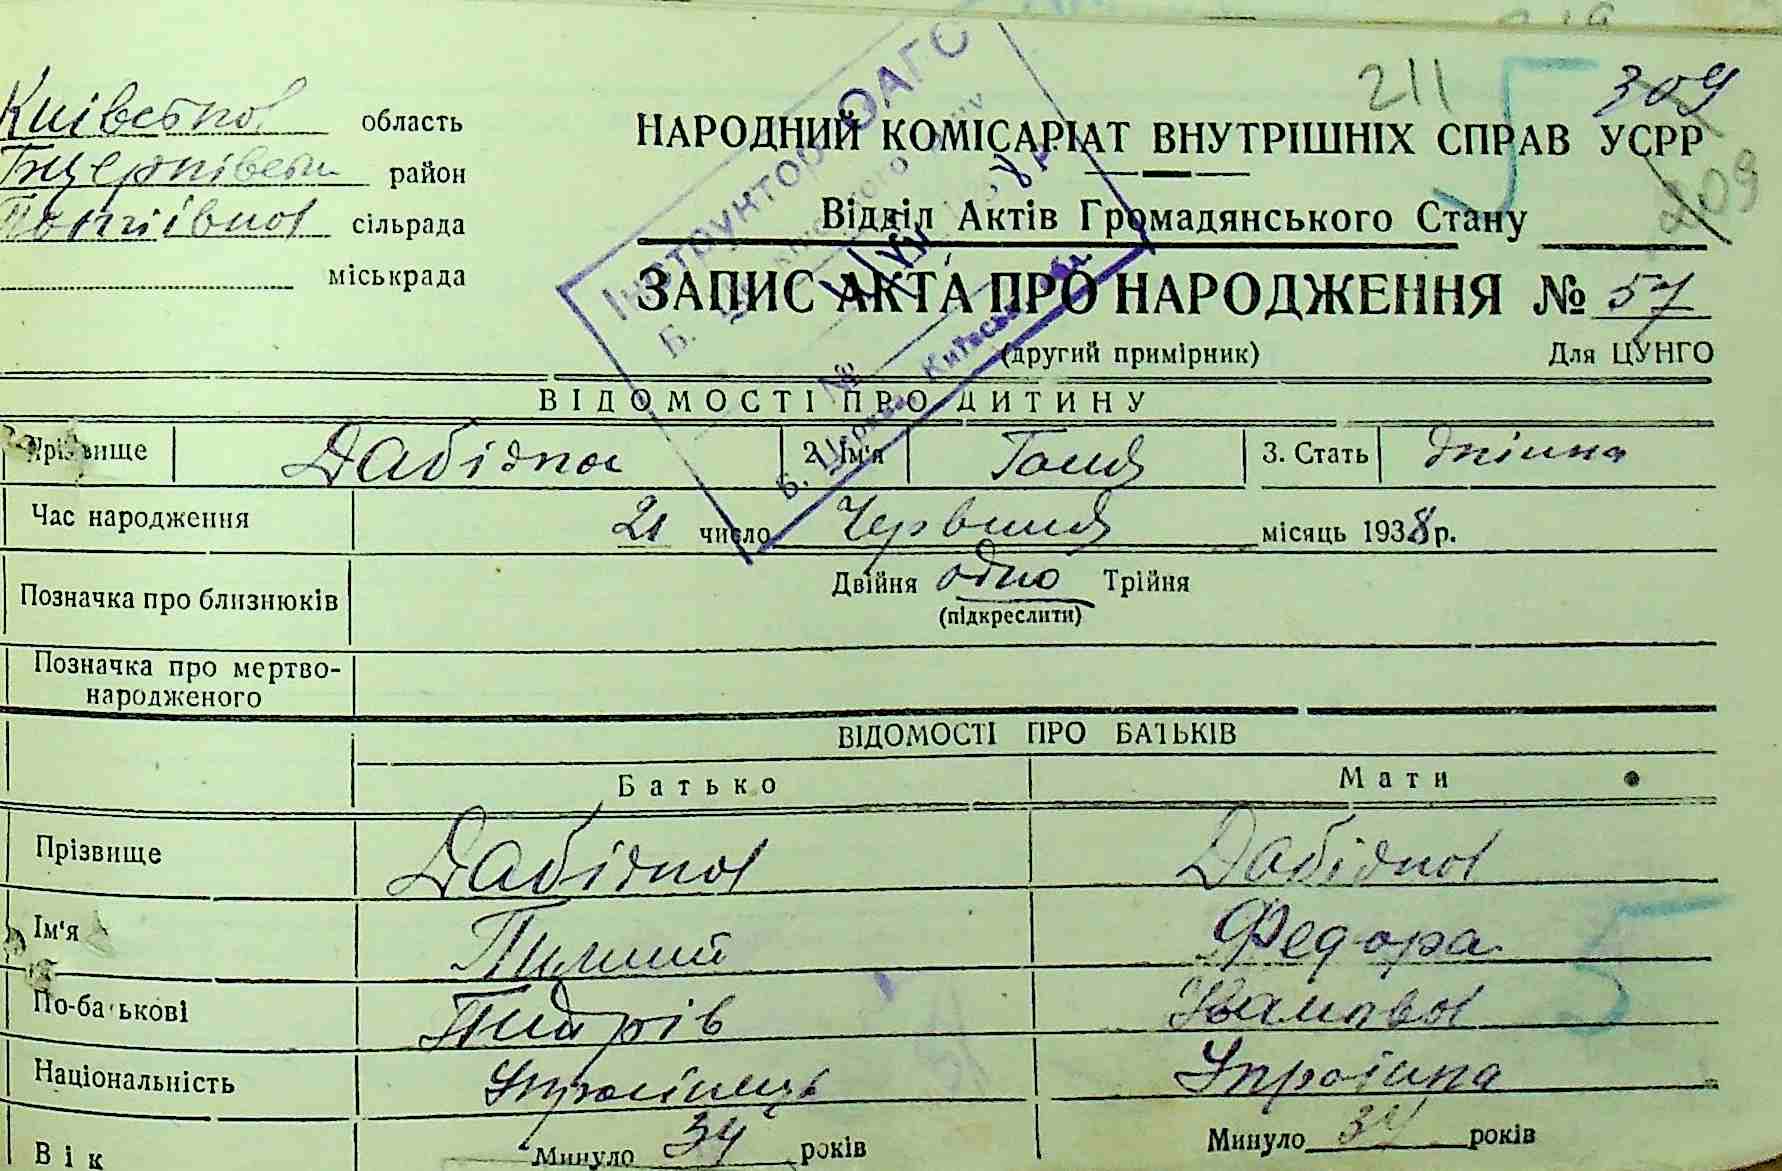 211 309
Київської область
209
НАРОДНИЙ КОМІСАРІАТ ВНУТРІШНІХ СПРАВ УСРР
район
Відділ Актів Громадянського Стану
сільрада
міськрада
ЗАПИС АКТА ПРО НАРОДЖЕННЯ № 57
(другий примірник) Для ЦУНГО
Інструктор ЮАГС
ВІДОМОСТІ ПРО ДИТИНУ
Прізвище Дабідна 2. Ім'я Ганя 3. Стать жіноча
Час народження 21 число Червня місяць 1938 р.
Позначка про близнюків Двійня одно Трійня
(підкреслити)
Позначка про мертво-
народженого
ВІДОМОСТІ ПРО БАТЬКІВ
Батько Мати
Прізвище Дабідна Дабідна
Ім'я Федора
По-батькові Івановна
Національність Українець Українка
Вік Минуло 34 років Минуло 34 років